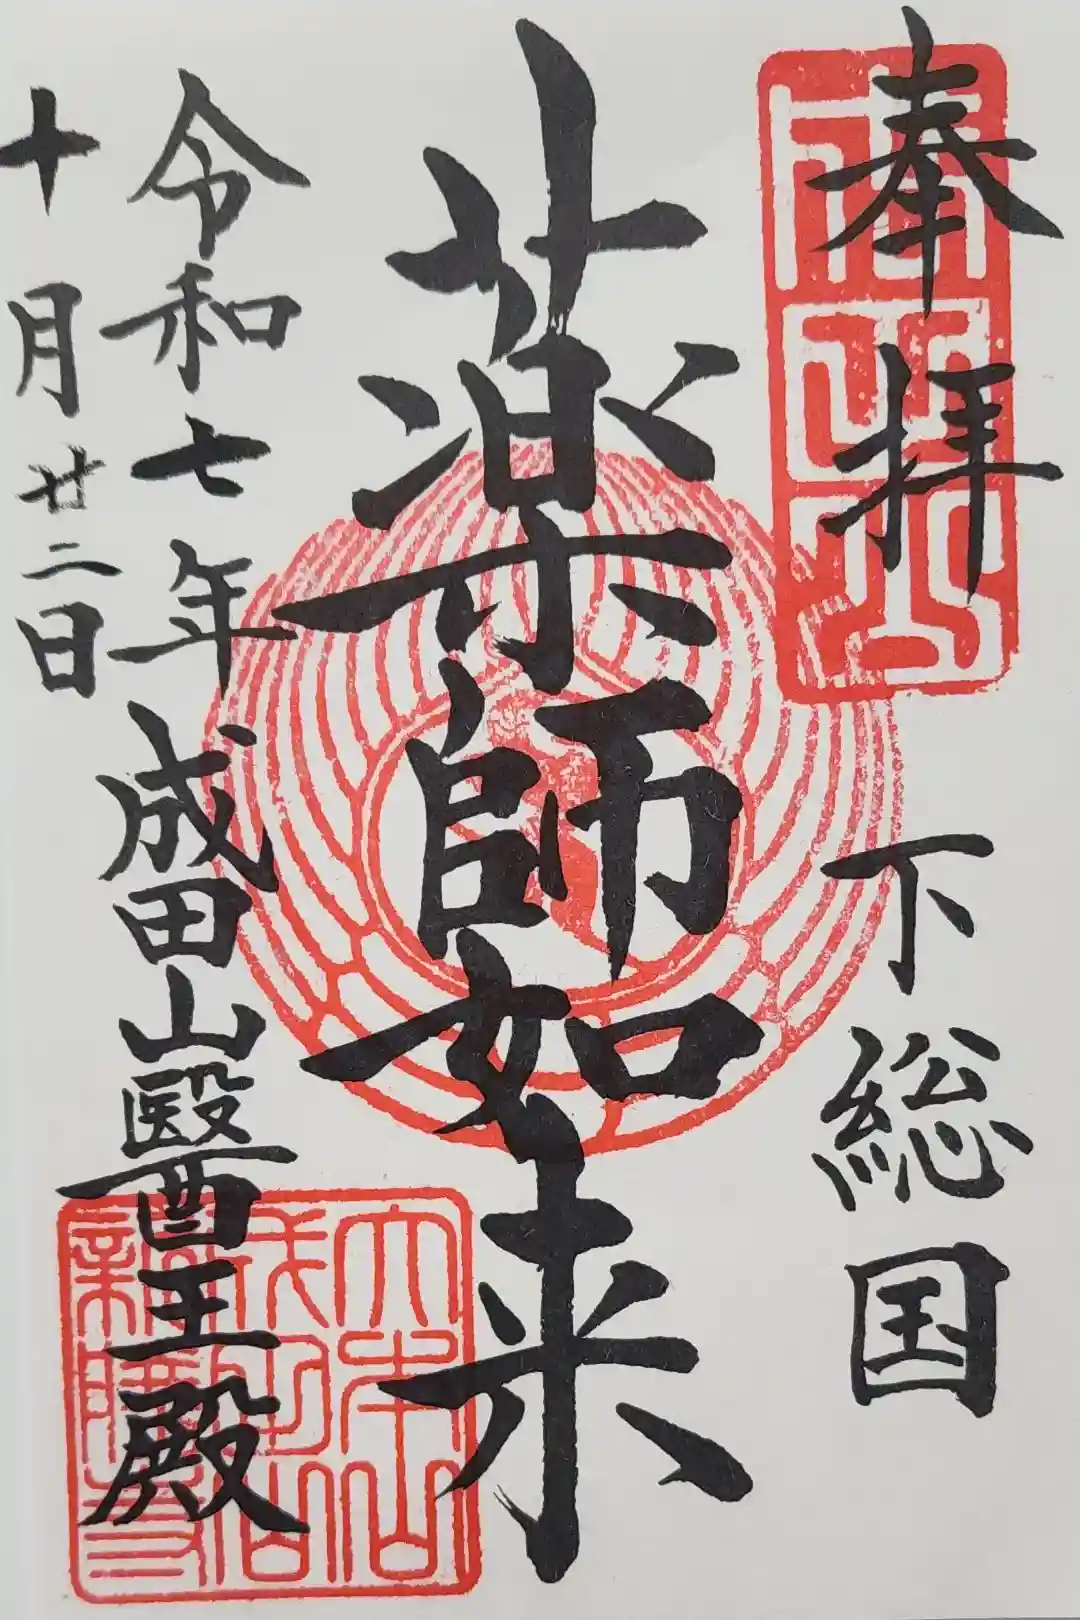 奉拝
下総国
薬師如来
令和七年
成田山醫王殿
十月廿二日